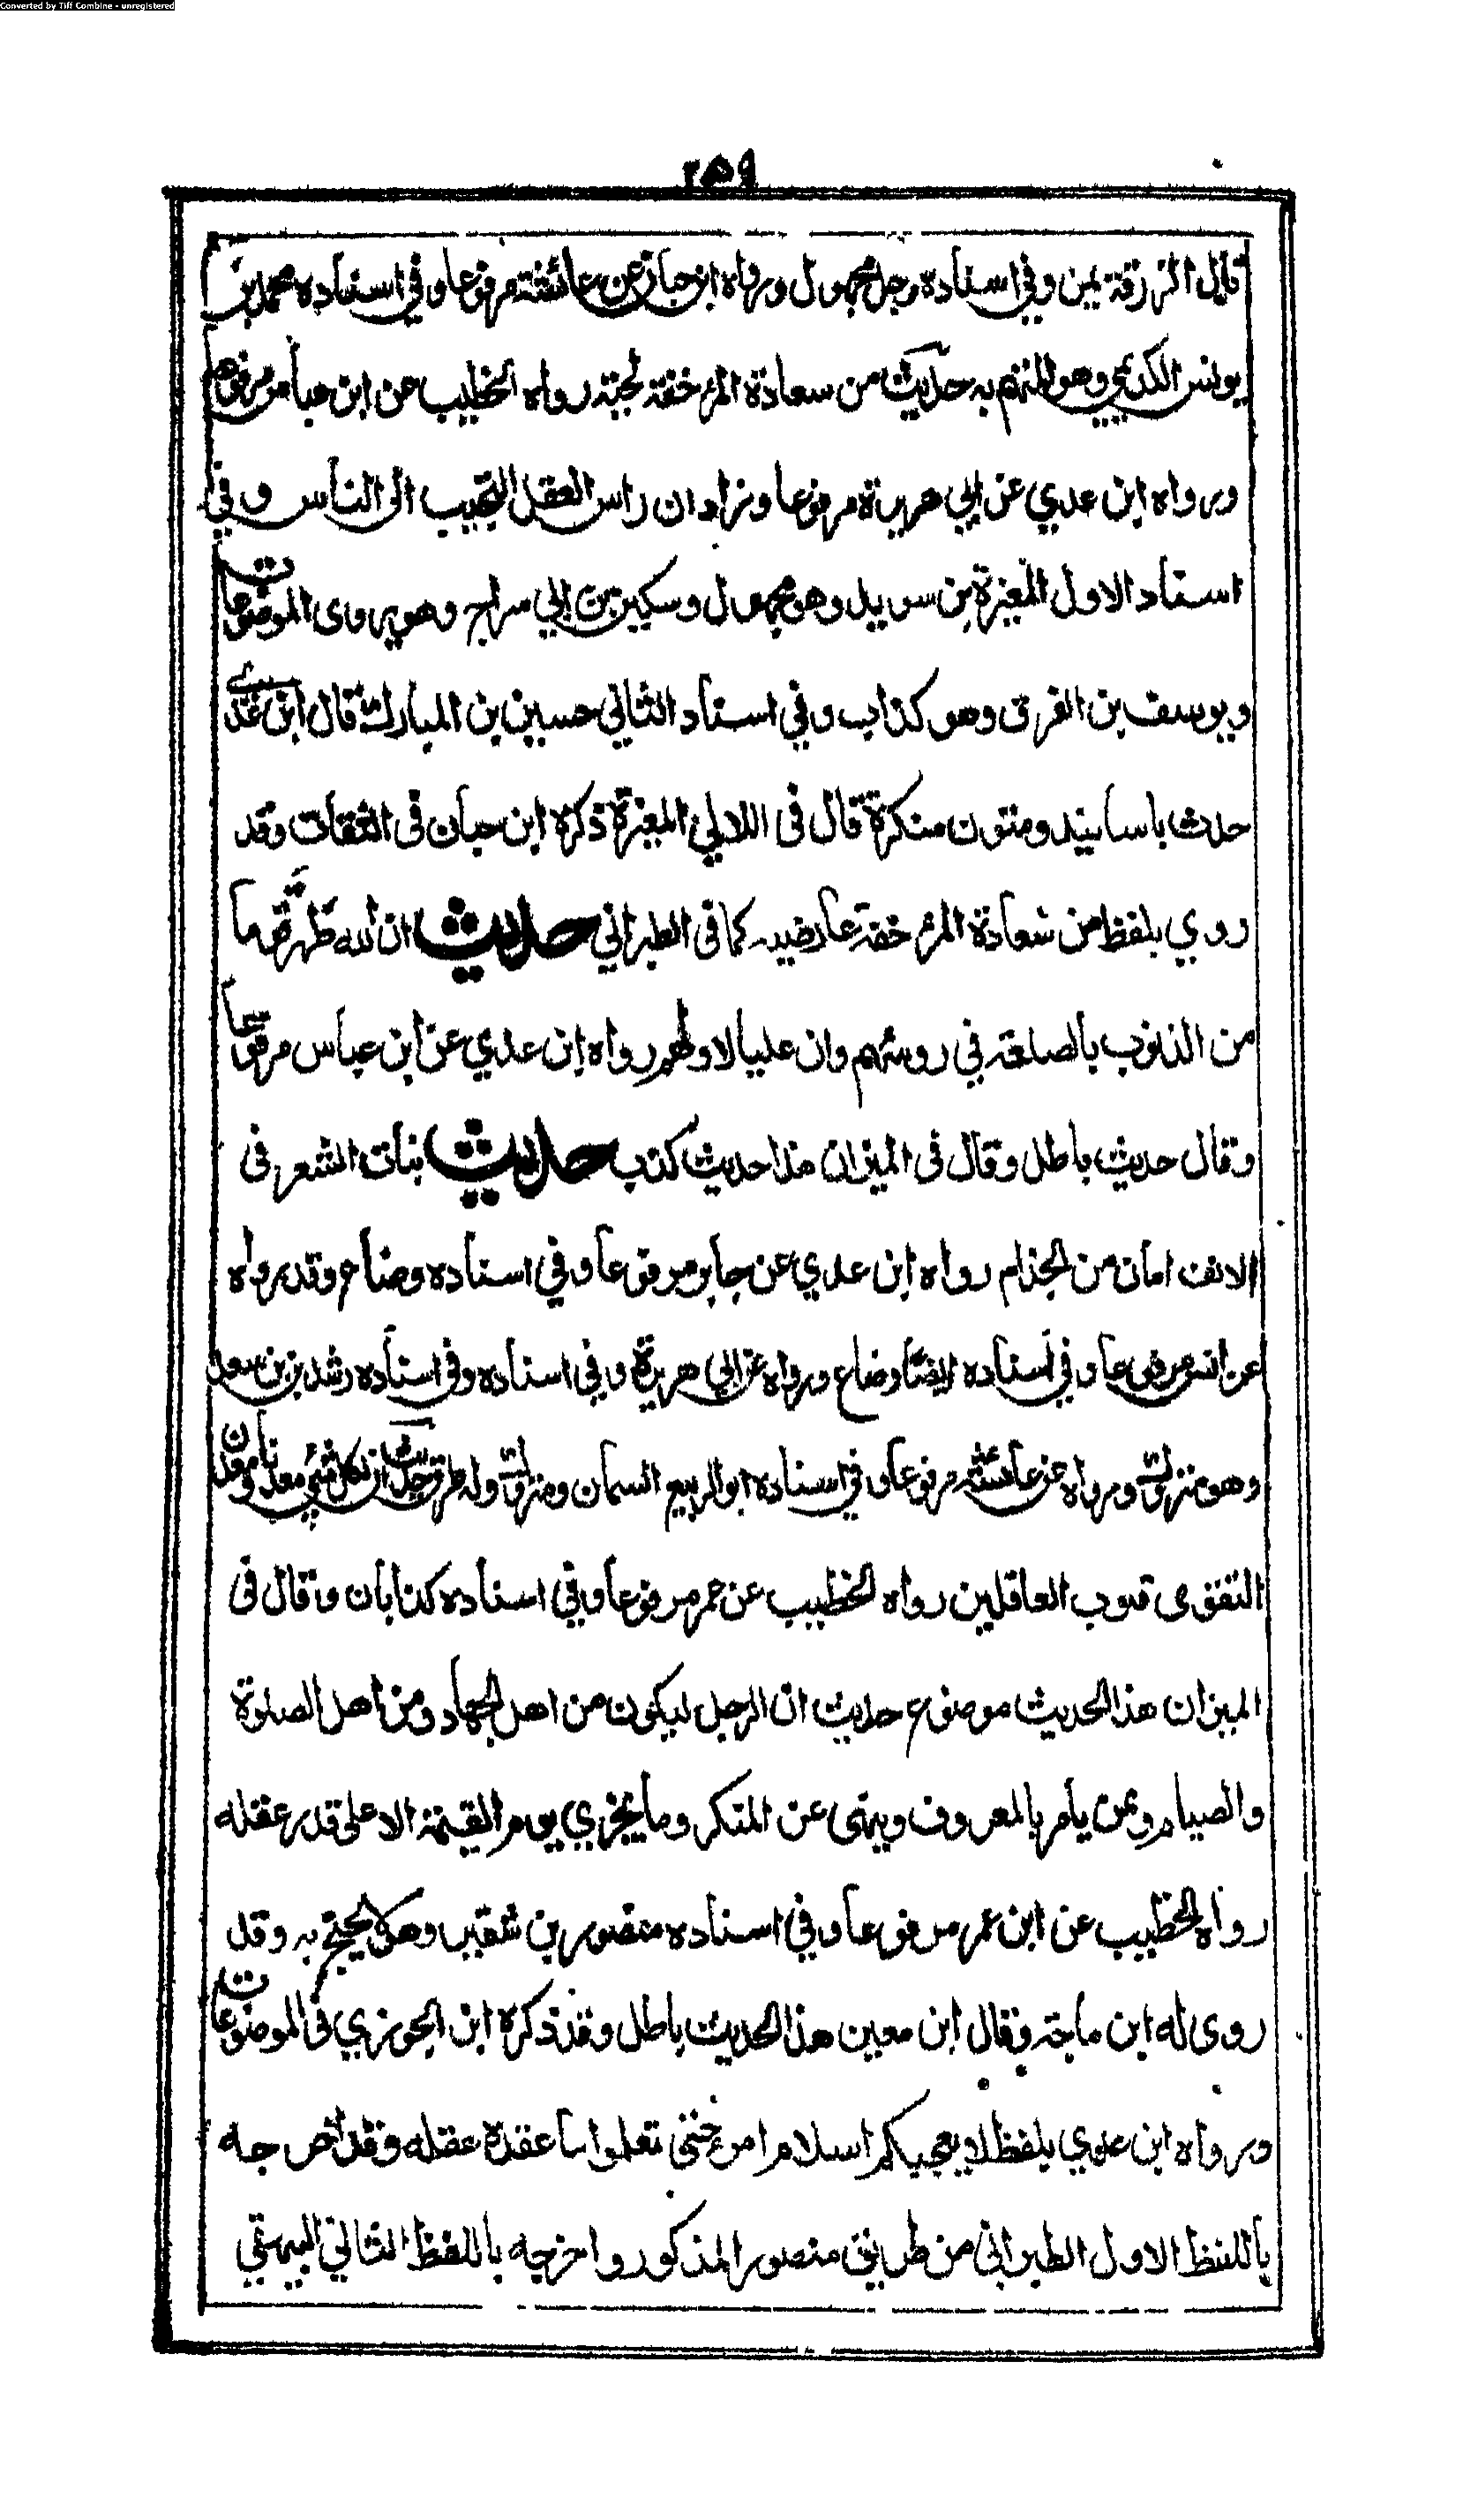 Converted by Tiff Combine - unregistered
٢٥٩
قال الزرقة يمن وفي اسناده رجل مجهول ورواه ابن حبان عن عائشة مرفوعا وفي اسناده محمد بن
يونس الكديمي وهو المتهم به حديث من سعادة المرء خفة لحيته رواه الخطيب عن ابن عباس مرفوعا
ورواه ابن عدي عن ابي هريرة مرفوعا وزاد ان راس العقل التحبب الى الناس وفي
اسناد الاول المغيرة بن سويد وهو مجهول وسكين بن ابي سراج وهو يروى الموضوعات
ويوسف بن الغرق وهو كذاب وفي اسناد الثاني حسين بن المبارك قال ابن عدي
حدث باسانيد ومتون منكرة قال في اللالي المغيرة ذكره ابن حبان في الثقات وقد
روي بلفظ من سعادة المرء خفة عارضيه كما في الطبراني حديث ان الله طهر قوما
من الذنوب بالصلعة في روسهم وان عليا لاولهم رواه ابن عدي عن ابن عباس مرفوعا
وقال حديث باطل وقال في الميزان هذا حديث كذب حديث نبات الشعر في
الانف امان من الجذام رواه ابن عدي عن جابر مرفوعا وفي اسناده وضاع وقد رواه
عن انس مرفوعا وفي اسناده ايضا وضاع ورواه عن ابي هريرة وفي اسناده وفي اسناده رشدين بن سعد
وهو متروك ورواه عن عائشة مرفوعا وفي اسناده ابو الربيع السمان ومتروك وله طرق حديث ان لكل شئ معدنا ومعدن
التقوى قلوب العاقلين رواه الخطيب عن عمر مرفوعا وفي اسناده كذابان وقال في
الميزان هذا الحديث موضوع حديث ان الرجل ليكون من اهل الجهاد ومن اهل الصلوة
والصيام وممن يأمر بالمعروف وينهى عن المنكر وما يجزي يوم القيمة الا على قدر عقله
رواه الخطيب عن ابن عمر مرفوعا وفي اسناده منصور بن شقير وهو لا يحتج به وقد
روى له ابن ماجة وقال ابن معين هذا الحديث باطل وقد ذكره ابن الجوزي في الموضوعات
ورواه ابن عدي بلفظ لا يعجبكم اسلام امرئ حتى تعلموا ما عقدة عقله وقد اخرجه
باللفظ الاول الطبراني من طريق منصور المذكور واخرجه باللفظ الثاني البيهقي